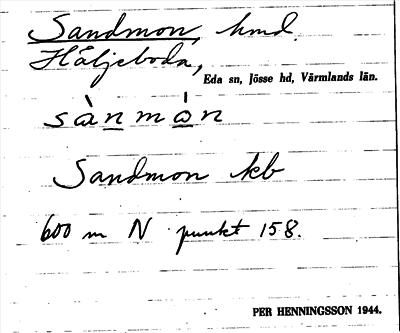 Sandmon, hmd.
Häljeboda,
Eda sn, Jösse hd, Värmlands län.
sànmón
Sandmon kb
600 m N punkt 158.
PER HENNINGSSON 1944.